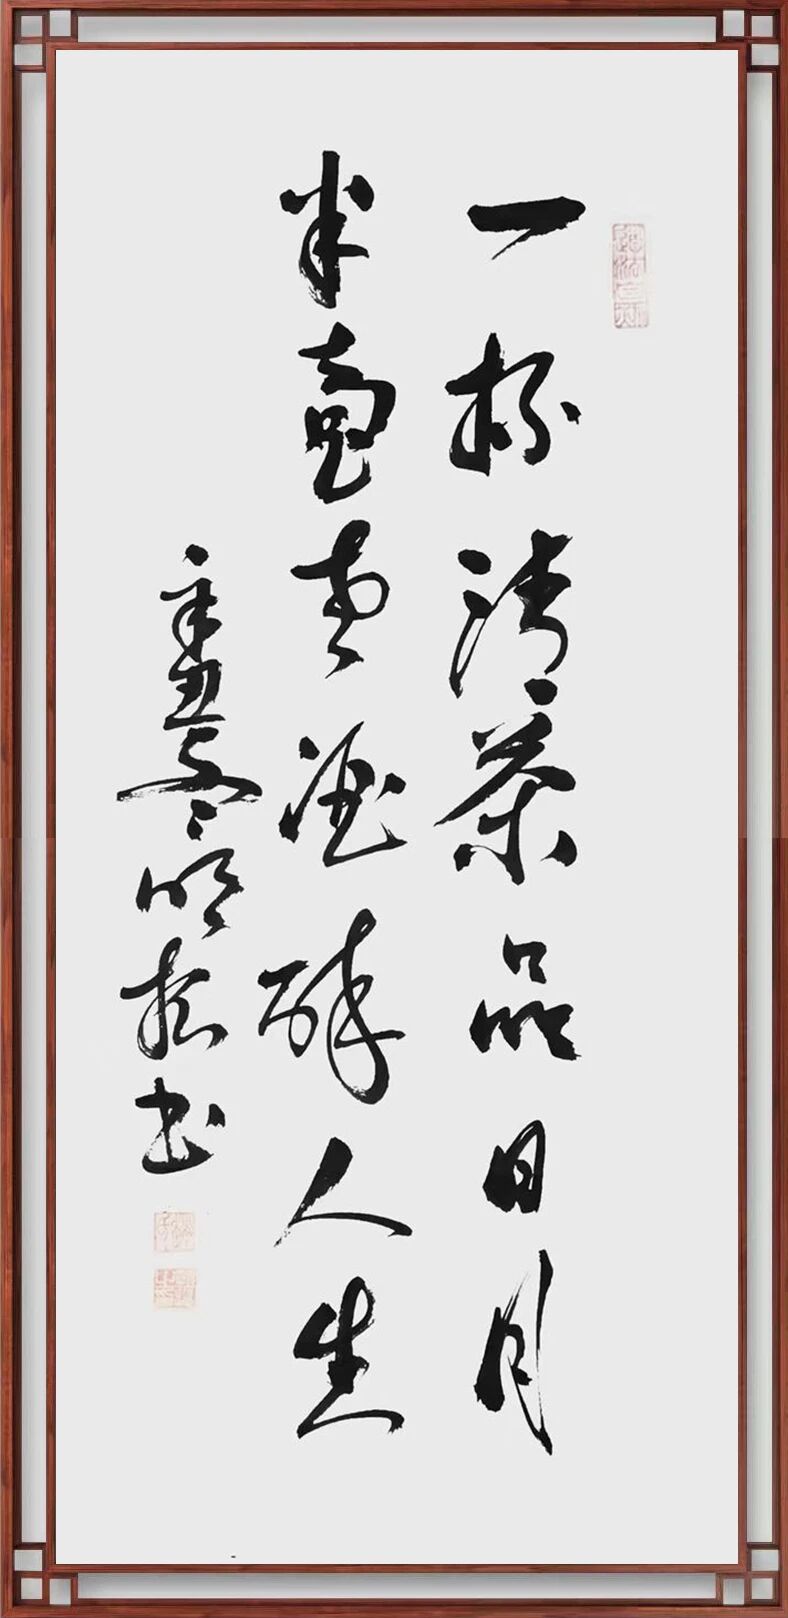 一杯清茶品日月
半壺老酒醉人生
辛丑冬明松书